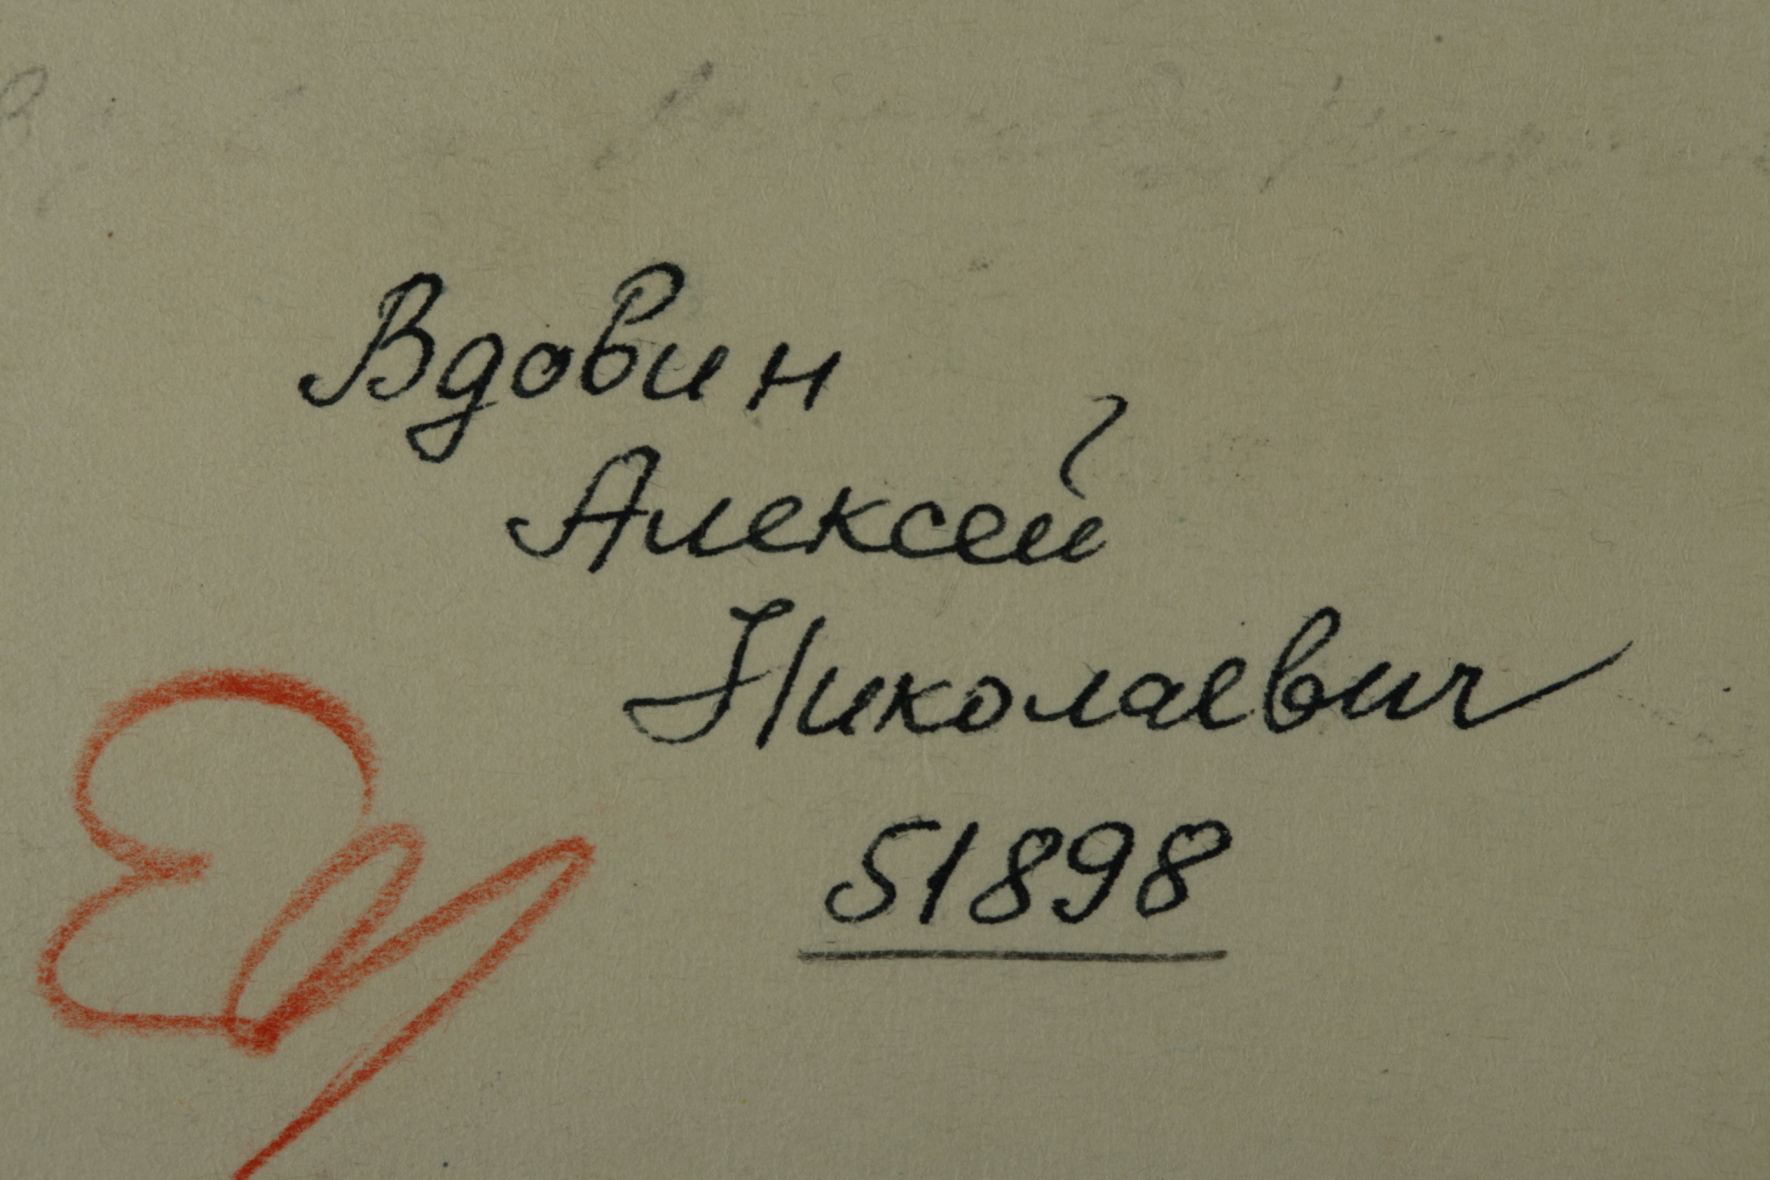 Вдовин
Алексей
Николаевич
51898